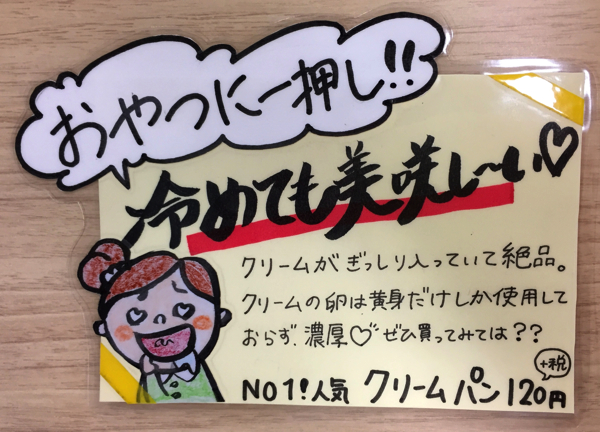 おやつに一押し!!
冷めても美咲し〜い♡
クリームがぎっしり入っていて絶品。
クリームの卵は黄身だけしか使用して
おらず、濃厚♡ぜひ買ってみては??
+税
NO1!人気 クリームパン120円